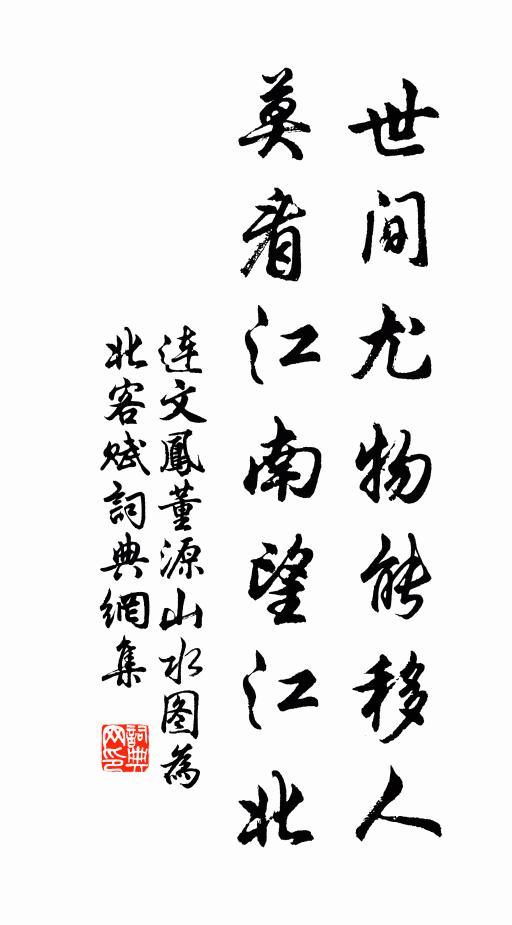 世间尤物能移人
莫看江南望江北
连文鳳董源山水图為
北客赋詞典網集
詞典网印